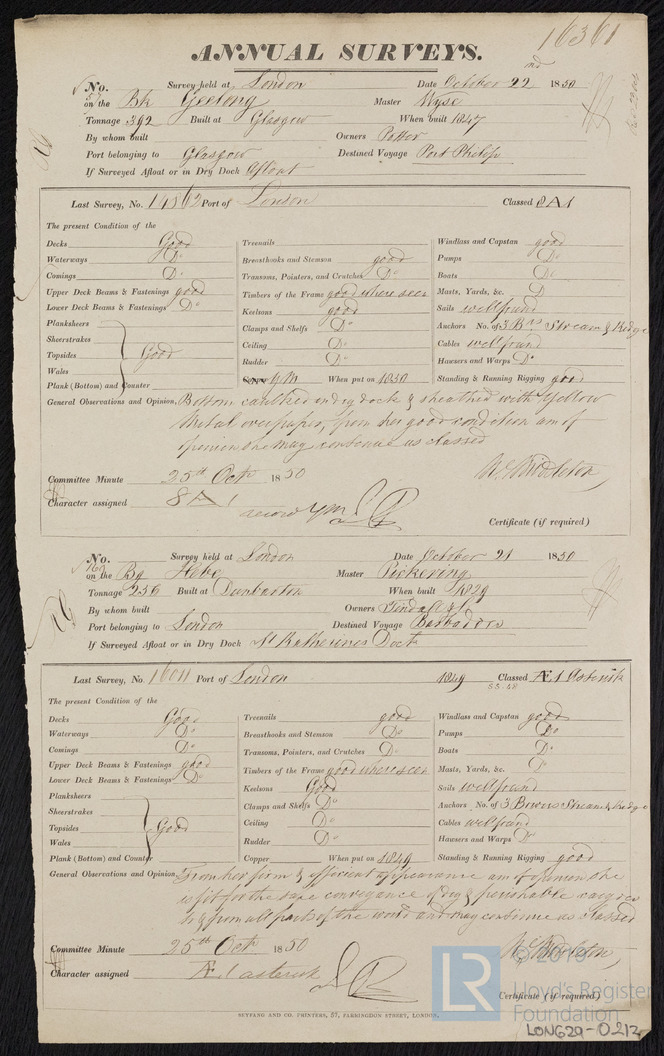 16361
ANNUAL SURVEYS.
No. Survey held at London Date October 22nd 1850
on the Bk Geelong Master Wyse
Tonnage 392 Built at Glasgow When built 1847
By whom built Owners Potter
Port belonging to Glasgow Destined Voyage Port Philip
If Surveyed Afloat or in Dry Dock Afloat
Last Survey, No. Port of London Classed 8A1
The present Condition of the
Decks Good
Waterways Do
Comings Do
Upper Deck Beams & Fastenings good
Lower Deck Beams & Fastenings Do
Planksheers
Sheerstrakes
Topsides Good
Wales
Plank (Bottom) and Counter
Treenails
Breasthooks and Stemson good
Transoms, Pointers, and Crutches Do
Timbers of the Frame good where seen
Keelsons good
Clamps and Shelfs Do
Ceiling Do
Rudder Do
Copper YM When put on 1850
Windlass and Capstan good
Pumps Do
Boats Do
Masts, Yards, &c. Do
Sails well found
Anchors No. of 3 Brs Stream & Kedge
Cables well found
Hawsers and Warps Do
Standing & Running Rigging good
General Observations and Opinion, Bottom caulked in dry dock & sheathed with Yellow
Metal over paper, from her good condition am of
opinion she may continue as classed
Wm Middleton
Committee Minute 25th Oct 1850
Character assigned 8A1
record YM
Certificate (if required)
No. Survey held at London Date October 21 1850
on the Bg Hebe Master Pickering
Tonnage 256 Built at Dunbarton When built 1829
By whom built Owners Tindall & Co
Port belonging to London Destined Voyage Barbadoes
If Surveyed Afloat or in Dry Dock St Katherines Dock
Last Survey, No. 16011 Port of London 1849 Classed Æ1 Asterisk
The present Condition of the
Decks Good
Waterways Do
Comings Do
Upper Deck Beams & Fastenings good
Lower Deck Beams & Fastenings Do
Planksheers
Sheerstrakes
Topsides Good
Wales
Plank (Bottom) and Counter
Treenails good
Breasthooks and Stemson Do
Transoms, Pointers, and Crutches Do
Timbers of the Frame good where seen
Keelsons Good
Clamps and Shelfs Do
Ceiling Do
Rudder Do
Copper When put on 1849
Windlass and Capstan good
Pumps Do
Boats Do
Masts, Yards, &c. Do
Sails well found
Anchors No. of 3 Bowers Stream & Kedge
Cables well found
Hawsers and Warps Do
Standing & Running Rigging good
General Observations and Opinion From her firm & efficient appearance am of opinion she
is fit for the safe conveyance of dry & perishable cargoes
to & from all parts of the world and may continue as classed
Wm Middleton
Committee Minute 25th Oct 1850
Character assigned Æ1 asterisk
Certificate (if required)
SEYFANG AND CO. PRINTERS, 57, FARRINGDON STREET, LONDON.
LR
© 2019
Lloyd's Register
Foundation
LON629-0212